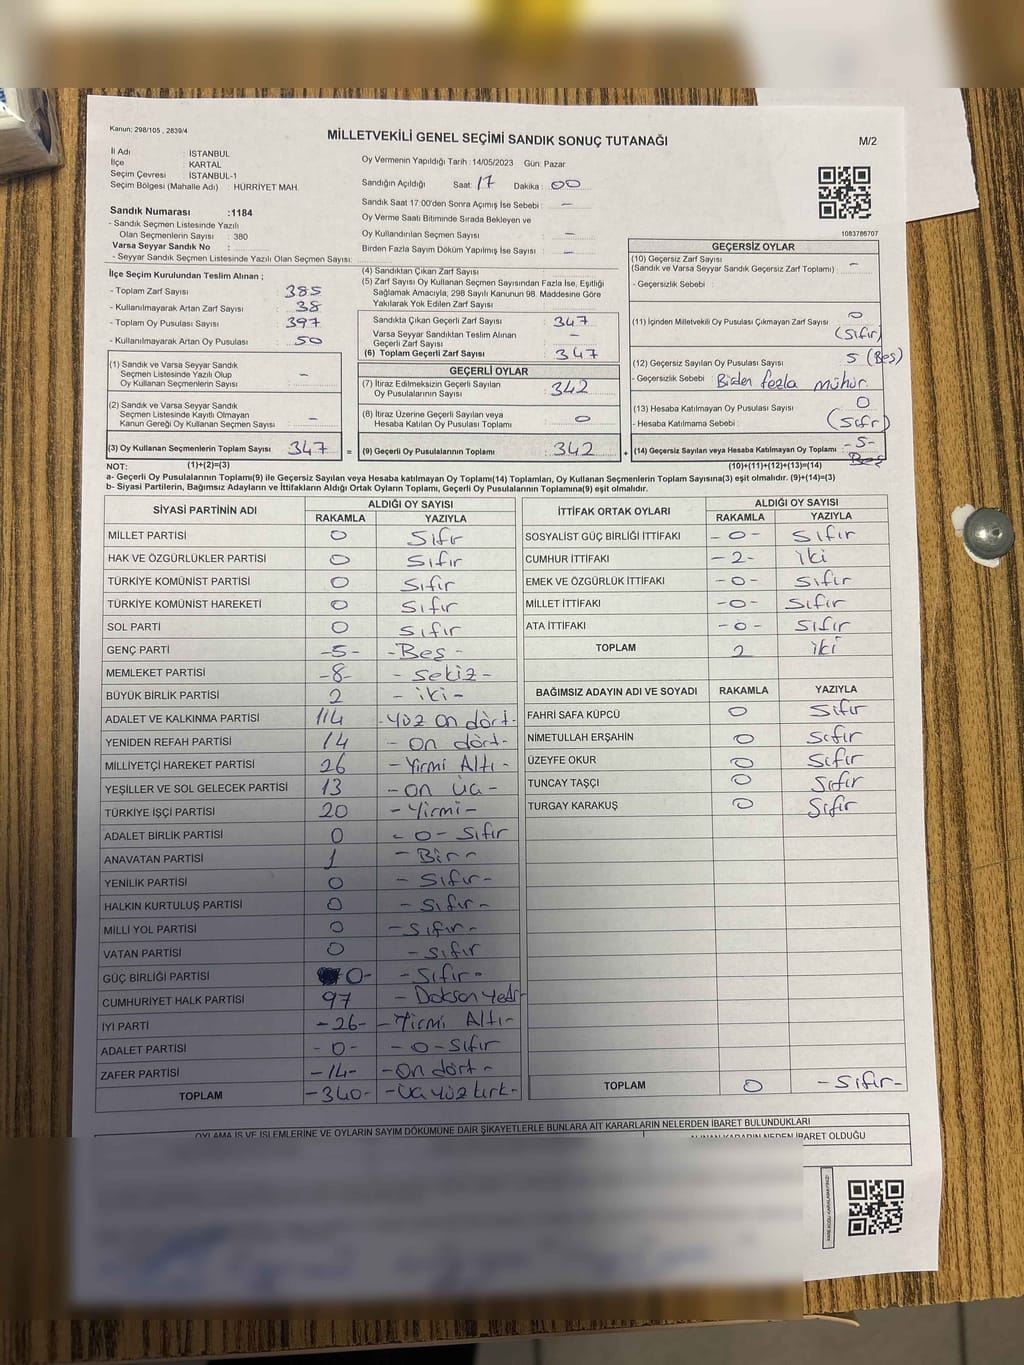 Kanun: 298/105 , 2839/4
MİLLETVEKİLİ GENEL SEÇİMİ SANDIK SONUÇ TUTANAĞI
M/2
İl Adı : İSTANBUL
İlçe : KARTAL
Seçim Çevresi : İSTANBUL-1
Seçim Bölgesi (Mahalle Adı) : HÜRRİYET MAH.
Sandık Numarası :1184
- Sandık Seçmen Listesinde Yazılı
Olan Seçmenlerin Sayısı : 380
Varsa Seyyar Sandık No :
- Seyyar Sandık Seçmen Listesinde Yazılı Olan Seçmen Sayısı:
Oy Vermenin Yapıldığı Tarih :14/05/2023 Gün: Pazar
Sandığın Açıldığı Saat: 17 Dakika: 00
Sandık Saat 17:00'den Sonra Açımış İse Sebebi : –
Oy Verme Saati Bitiminde Sırada Bekleyen ve
Oy Kullandırılan Seçmen Sayısı : –
Birden Fazla Sayım Döküm Yapılmış İse Sayısı : –
1083786707
İlçe Seçim Kurulundan Teslim Alınan ;
- Toplam Zarf Sayısı : 385
- Kullanılmayarak Artan Zarf Sayısı : 38
- Toplam Oy Pusulası Sayısı : 397
- Kullanılmayarak Artan Oy Pusulası : 50
(1) Sandık ve Varsa Seyyar Sandık
Seçmen Listesinde Yazılı Olup
Oy Kullanan Seçmenlerin Sayısı : –
(2) Sandık ve Varsa Seyyar Sandık
Seçmen Listesinde Kayıtlı Olmayan
Kanun Gereği Oy Kullanan Seçmen Sayısı : –
(3) Oy Kullanan Seçmenlerin Toplam Sayısı : 347 =
(4) Sandıktan Çıkan Zarf Sayısı :
(5) Zarf Sayısı Oy Kullanan Seçmen Sayısından Fazla İse, Eşitliği
Sağlamak Amacıyla, 298 Sayılı Kanunun 98. Maddesine Göre
Yakılarak Yok Edilen Zarf Sayısı :
Sandıkta Çıkan Geçerli Zarf Sayısı : 347
Varsa Seyyar Sandıktan Teslim Alınan
Geçerli Zarf Sayısı : –
(6) Toplam Geçerli Zarf Sayısı : 347
GEÇERLİ OYLAR
(7) İtiraz Edilmeksizin Geçerli Sayılan
Oy Pusulalarının Sayısı : 342
(8) İtiraz Üzerine Geçerli Sayılan veya
Hesaba Katılan Oy Pusulası Toplamı : 0
(9) Geçerli Oy Pusulalarının Toplamı : 342 +
GEÇERSİZ OYLAR
(10) Geçersiz Zarf Sayısı
(Sandık ve Varsa Seyyar Sandık Geçersiz Zarf Toplamı) : –
- Geçersizlik Sebebi :
(11) İçinden Milletvekili Oy Pusulası Çıkmayan Zarf Sayısı : 0
(Sıfır)
(12) Geçersiz Sayılan Oy Pusulası Sayısı : 5 (Beş)
- Geçersizlik Sebebi : Birden fazla mühür.
(13) Hesaba Katılmayan Oy Pusulası Sayısı : 0
- Hesaba Katılmama Sebebi : (Sıfır)
(14) Geçersiz Sayılan veya Hesaba Katılmayan Oy Toplamı : -5-
Beş
NOT: (1)+(2)=(3) (10)+(11)+(12)+(13)=(14)
a- Geçerli Oy Pusulalarının Toplamı(9) ile Geçersiz Sayılan veya Hesaba katılmayan Oy Toplamı(14) Toplamları, Oy Kullanan Seçmenlerin Toplam Sayısına(3) eşit olmalıdır. (9)+(14)=(3)
b- Siyasi Partilerin, Bağımsız Adayların ve İttifakların Aldığı Oyların Toplamı, Geçerli Oy Pusulalarının Toplamına(9) eşit olmalıdır.
SİYASİ PARTİNİN ADI ALDIĞI OY SAYISI
RAKAMLA YAZIYLA
MİLLET PARTİSİ 0 Sıfır
HAK VE ÖZGÜRLÜKLER PARTİSİ 0 Sıfır
TÜRKİYE KOMÜNİST PARTİSİ 0 Sıfır
TÜRKİYE KOMÜNİST HAREKETİ 0 Sıfır
SOL PARTİ 0 Sıfır
GENÇ PARTİ -5- -Beş-
MEMLEKET PARTİSİ -8- - Sekiz -
BÜYÜK BİRLİK PARTİSİ 2 - iki -
ADALET VE KALKINMA PARTİSİ 114 -Yüz On dört-
YENİDEN REFAH PARTİSİ 14 - On dört-
MİLLİYETÇİ HAREKET PARTİSİ 26 - Yirmi Altı -
YEŞİLLER VE SOL GELECEK PARTİSİ 13 - On Üç -
TÜRKİYE İŞÇİ PARTİSİ 20 - Yirmi -
ADALET BİRLİK PARTİSİ 0 - 0 - Sıfır
ANAVATAN PARTİSİ 1 - Bir -
YENİLİK PARTİSİ 0 - Sıfır -
HALKIN KURTULUŞ PARTİSİ 0 - Sıfır -
MİLLİ YOL PARTİSİ 0 - Sıfır -
VATAN PARTİSİ 0 - Sıfır
GÜÇ BİRLİĞİ PARTİSİ 0- - Sıfır -
CUMHURİYET HALK PARTİSİ 97 - Doksan Yedi-
İYİ PARTİ -26- - Yirmi Altı -
ADALET PARTİSİ -0- - 0 - Sıfır
ZAFER PARTİSİ -14- -On dört -
TOPLAM -340- -Üç Yüz kırk-
İTTİFAK ORTAK OYLARI ALDIĞI OY SAYISI
RAKAMLA YAZIYLA
SOSYALİST GÜÇ BİRLİĞİ İTTİFAKI -0- Sıfır
CUMHUR İTTİFAKI -2- iki
EMEK VE ÖZGÜRLÜK İTTİFAKI -0- Sıfır
MİLLET İTTİFAKI -0- Sıfır
ATA İTTİFAKI -0- Sıfır
TOPLAM 2 iki
BAĞIMSIZ ADAYIN ADI VE SOYADI RAKAMLA YAZIYLA
FAHRİ SAFA KÜPCÜ 0 Sıfır
NİMETULLAH ERŞAHİN 0 Sıfır
ÜZEYFE OKUR 0 Sıfır
TUNCAY TAŞÇI 0 Sıfır
TURGAY KARAKUŞ 0 Sıfır
TOPLAM 0 -Sıfır-
OYLAMA İŞ VE İŞLEMLERİNE VE OYLARIN SAYIM DÖKÜMÜNE DAİR ŞİKAYETLERLE BUNLARA AİT KARARLARIN NELERDEN İBARET BULUNDUKLARI
ALINAN KARARIN NEDEN İBARET OLDUĞU